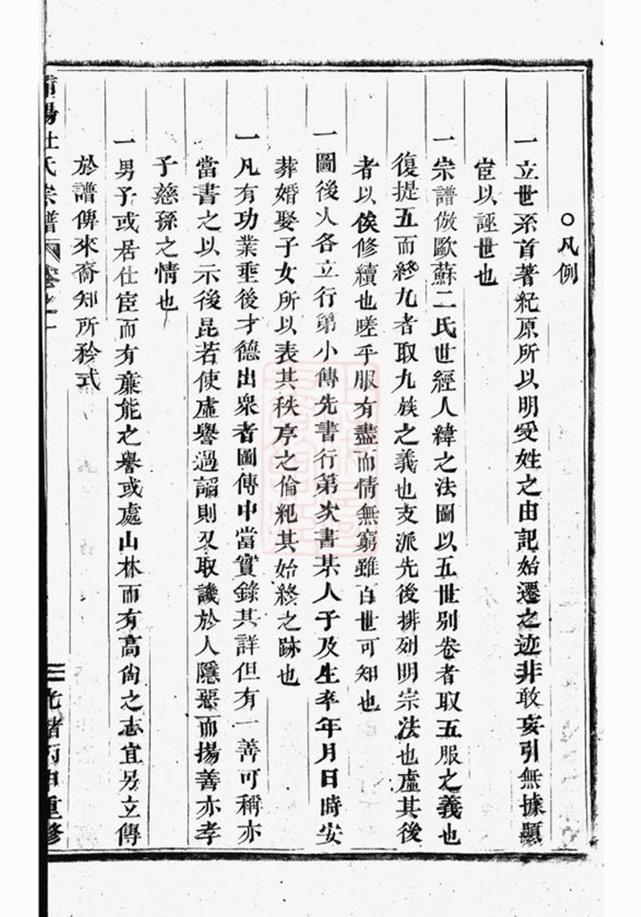 ○凡例
一立世系首著紀原所以明受姓之由記始遷之迹非敢妄引無據顯
宦以誣世也
一宗譜倣歐蘇二氏世經人緯之法圖以五世別卷者取五服之義也
復提五而終九者取九族之義也支派先後排列明宗法也虛其後
者以俟修續也嗟乎服有盡而情無窮雖百世可知也
一圖後人各立行第小傳先書行第次書某人子及生卒年月日時安
葬婚娶子女所以表其秩序之倫紀其始終之跡也
一凡有功業垂後才德出衆者圖傳中當實錄其詳但有一善可稱亦
當書之以示後昆若使虛譽過謟則又取譏於人隱惡而揚善亦孝
子慈孫之情也
一男子或居仕宦而有亷能之譽或處山林而有高尙之志宜另立傳
於譜俾來裔知所矜式
陽杜氏宗譜 卷之一
三 光緒丙申重修